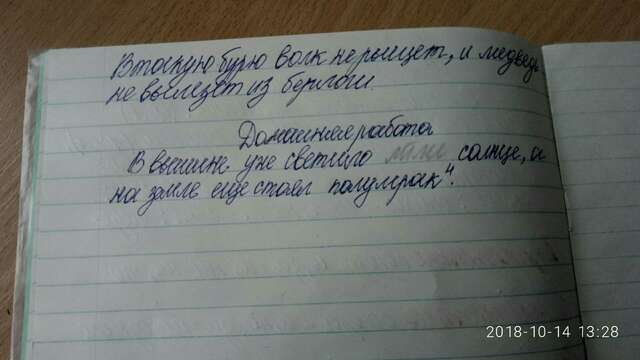 В такую бурю волк не рыщет, и медведь
не вылезет из берлоги.
Домашняя работа
В вышине уже светило солнце, а
на земле еще стоял полумрак".
2018-10-14 13:28